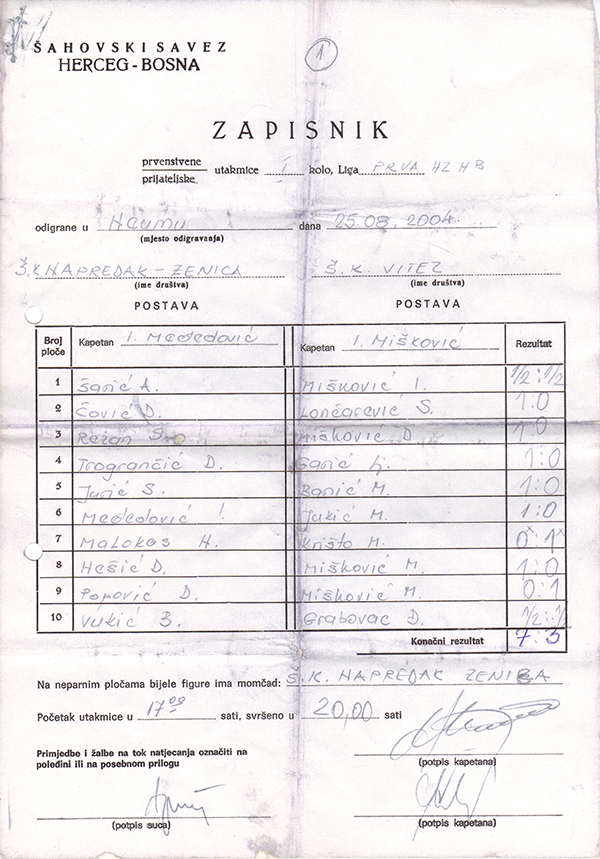 ŠAHOVSKI SAVEZ
HERCEG-BOSNA
1
ZAPISNIK
prvenstvene
prijateljske
utakmice I kolo, Liga PRVA HZ HB
odigrane u Neumu dana 25.08.2004.
(mjesto odigravanja)
Š.K. NAPREDAK - ZENICA Š.K. VITEZ
(ime društva) (ime društva)
POSTAVA POSTAVA
Broj ploče Kapetan I. Međedović Kapetan I. Mišković Rezultat
1 Šarić A. Mišković I. 1/2:1/2
2 Čović D. Lončarević S. 1:0
3 Režan Mišković D. 1:0
4 Trogrančić D. Garić Lj. 1:0
5 Jurić S. Banić M. 1:0
6 Međedović I. Jukić M. 1:0
7 Malokas H. Krišto M. 0x:1x
8 Hešić D. Mišković M. 1:0
9 Popović D. Mišković M. 0:1
10 Vukić B. Grabovac D. 1/2:1/2
Konačni rezultat 7:3
Na neparnim pločama bijele figure ima momčad: Š.K. NAPREDAK ZENICA
Početak utakmice u 17 00 sati, svršeno u 20,00 sati
Primjedbe i žalbe na tok natjecanja označiti na
poleđini ili na posebnom prilogu
(potpis kapetana)
(potpis suca) (potpis kapetana)